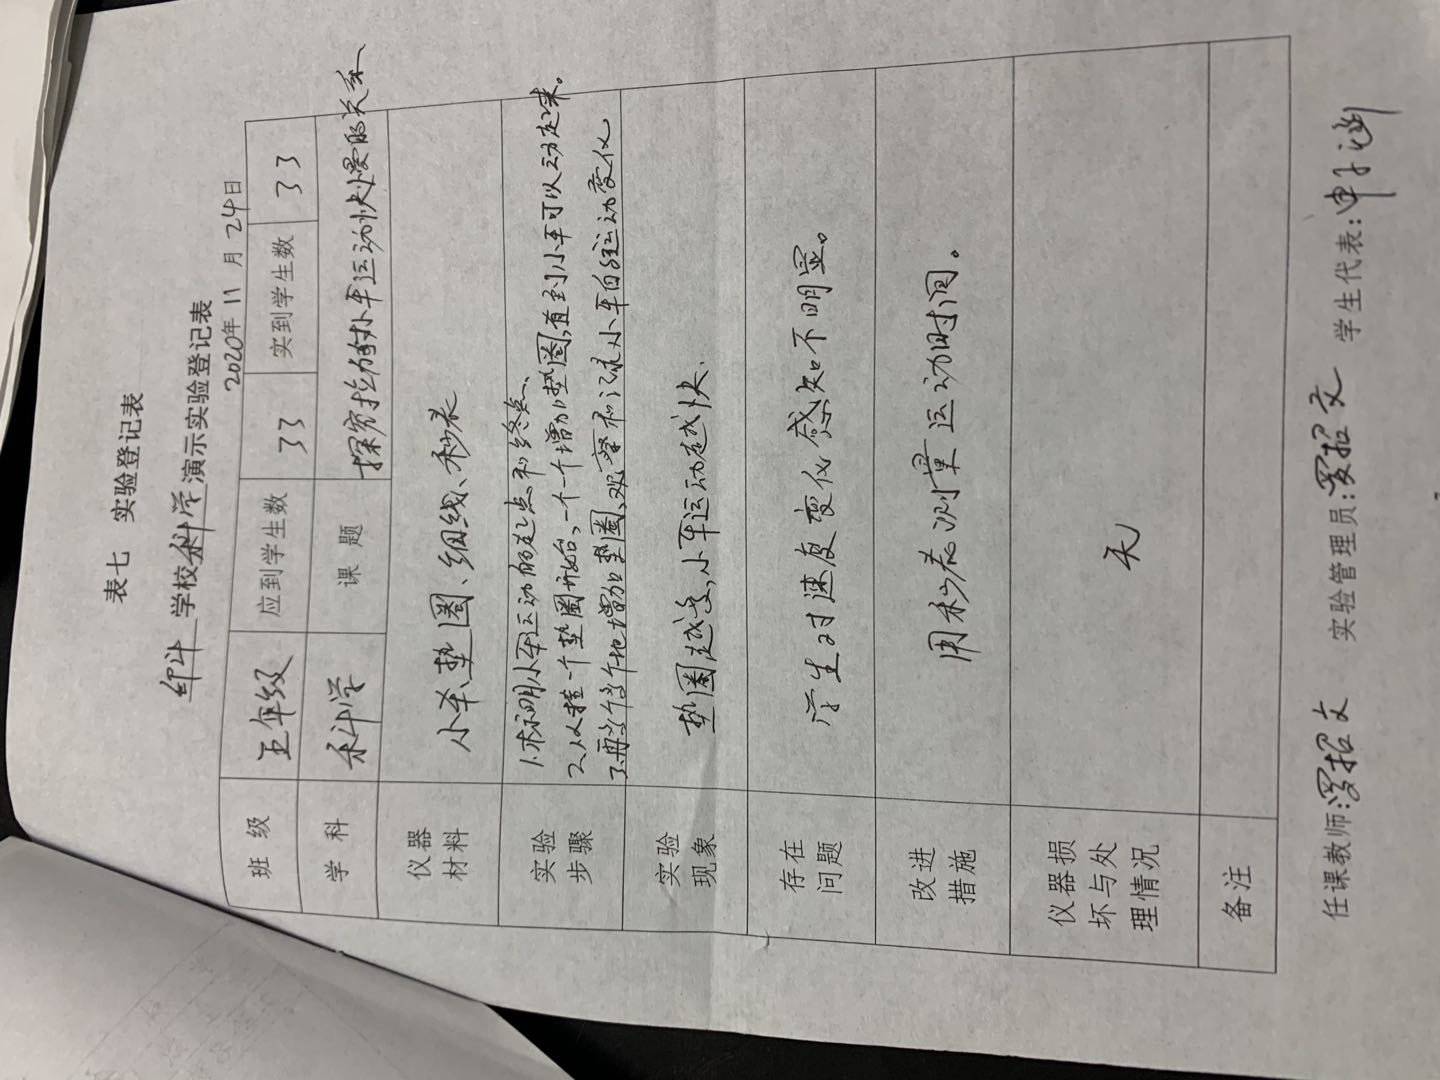 表七 实验登记表
学校科学演示实验登记表
2020年11月24日
班级 五年级 应到学生数 33 实到学生数 33
学科 科学 课题 探究拉力对小车运动快慢的关系
仪器材料 小车、垫圈、细线、秒表
实验步骤 1.标明小车运动的起点和终点、
2、从挂一个垫圈开始,一个一个增加垫圈,直到小车可以动起来。
3再 个 个地增加垫圈,观察和记录小车的运动变化
实验现象 垫圈越多,小车运动越快、
存在问题 学生对速度变化感知不明显。
改进措施 用秒表测量运动时间。
仪器损坏与处理情况 无
备注
任课教师: 招文 实验管理员: 招文 学生代表:申